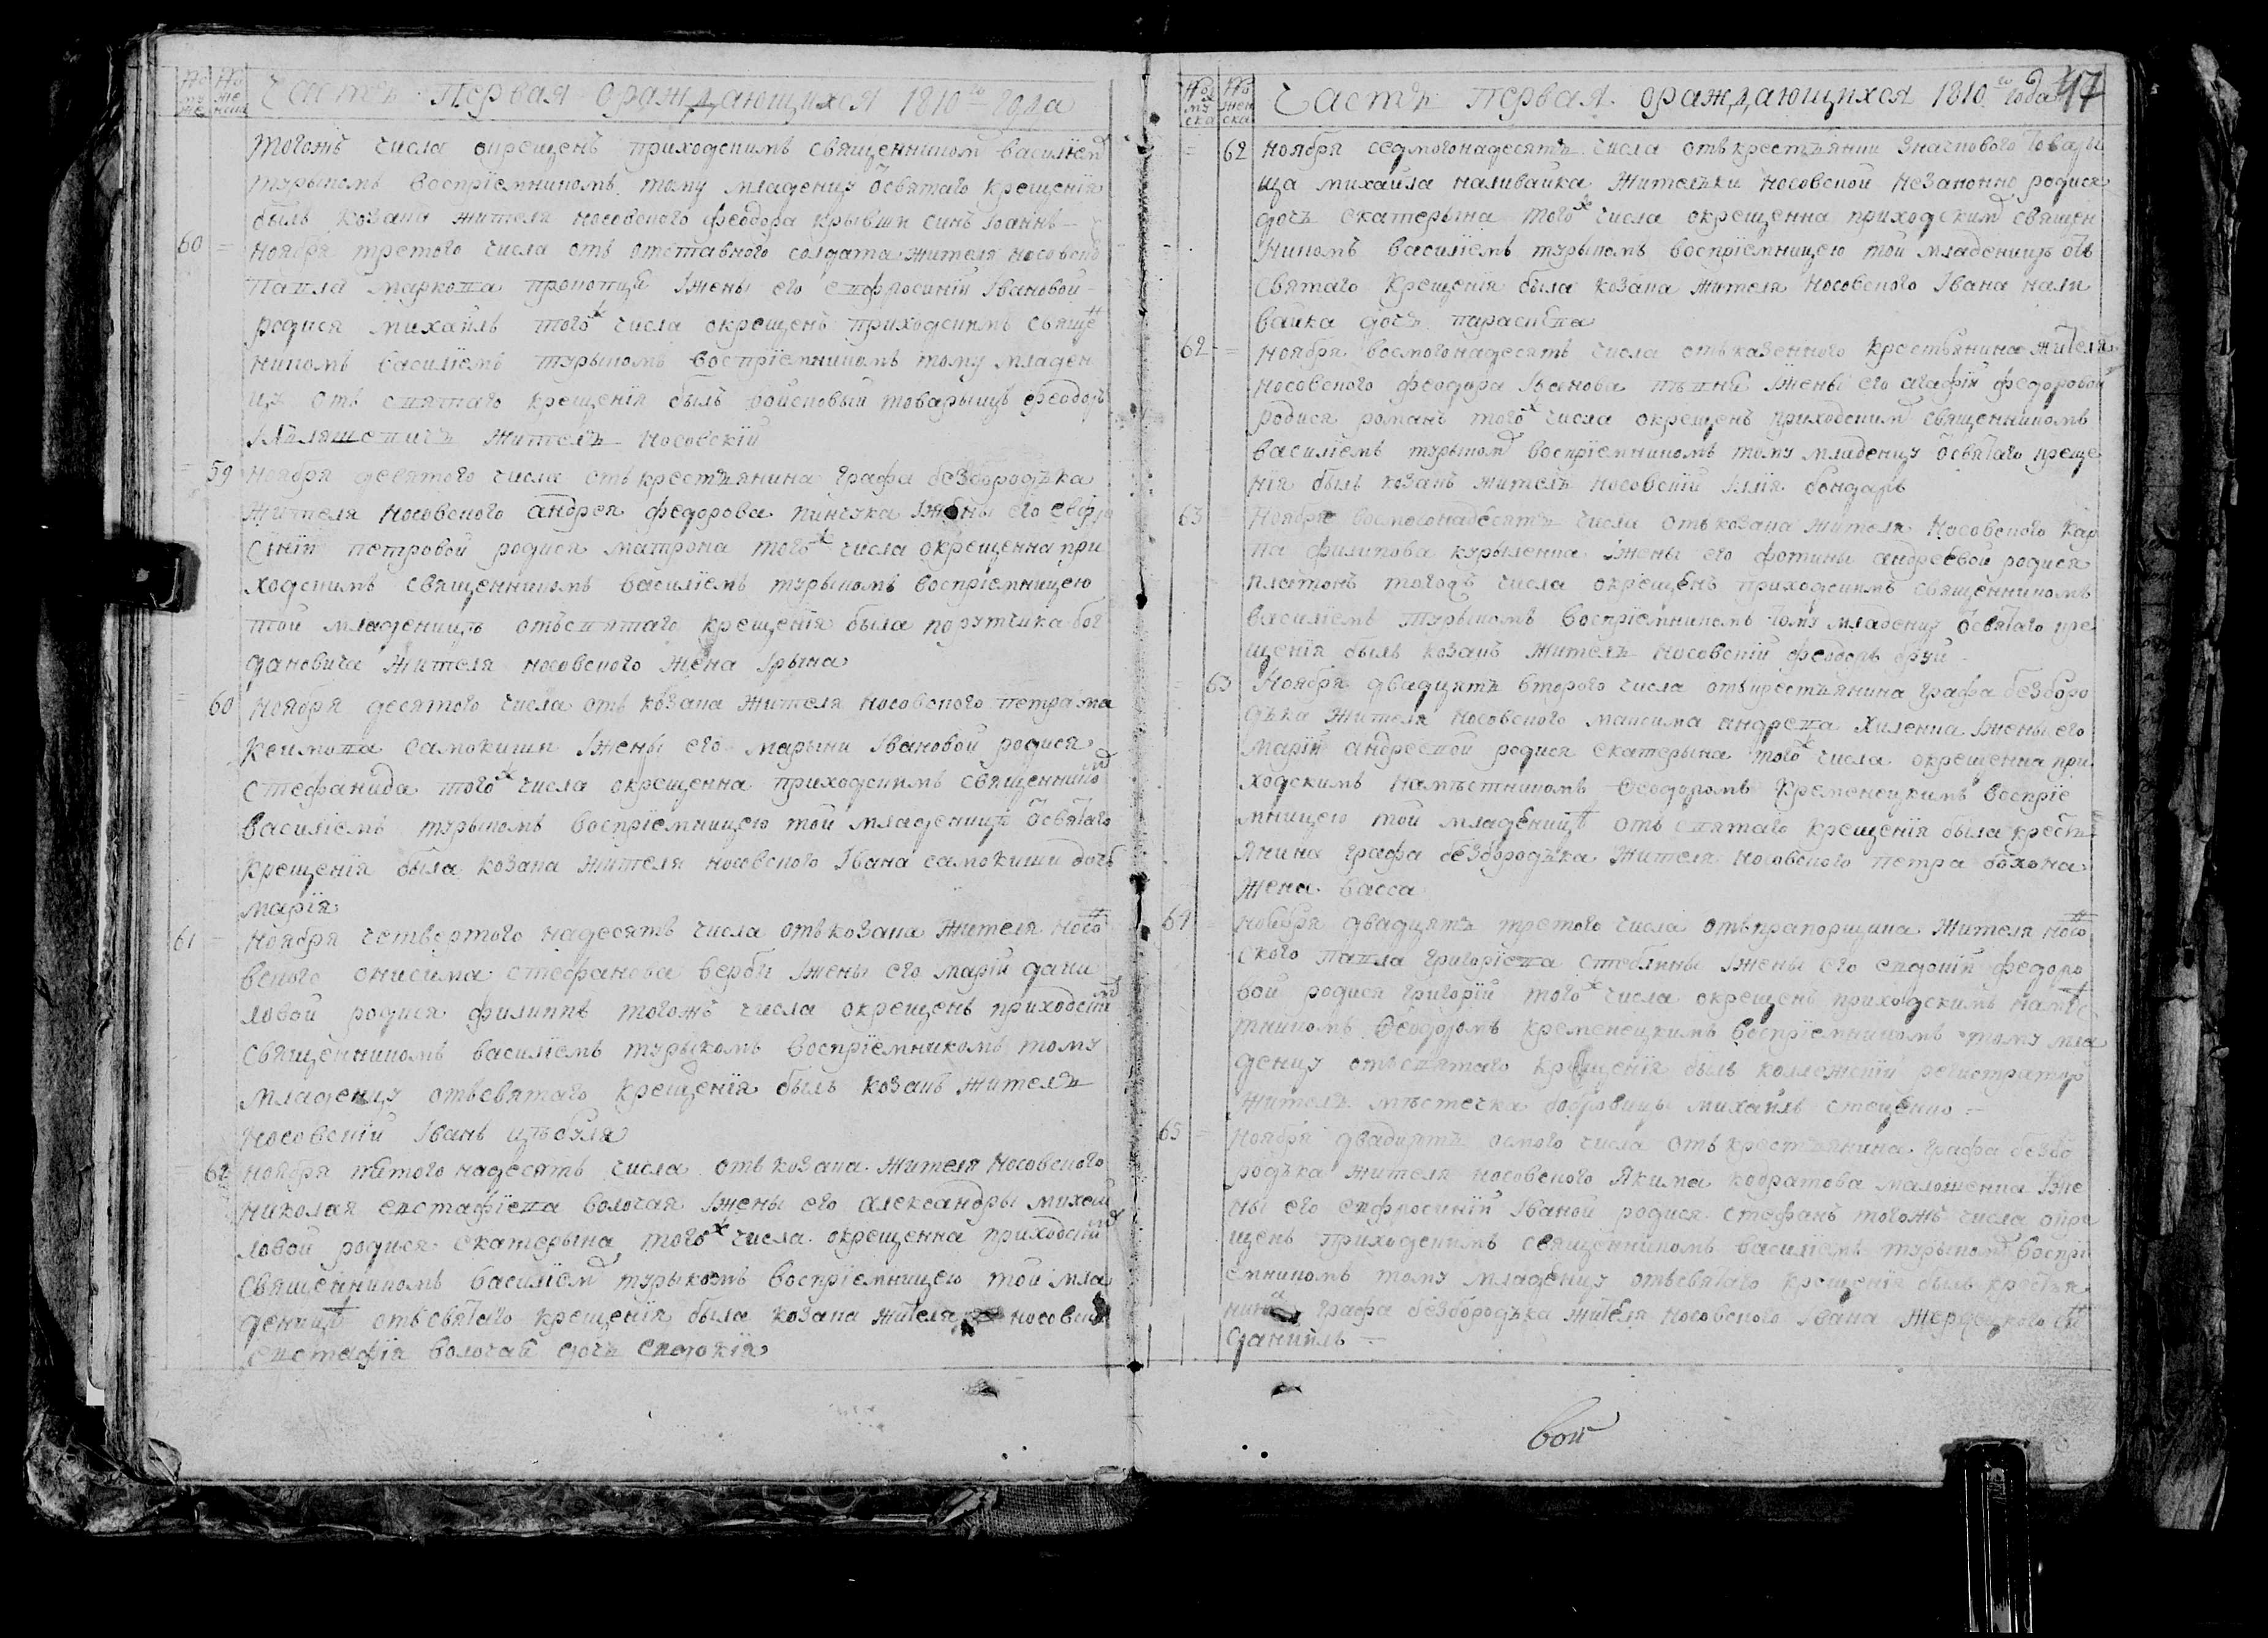 Часть Первая ораждающихся 1810го года
тогожъ числа окрещенъ приходскимъ священникомъ василіем
турыкомъ восприемникомъ тому младенцу освятаго крещенія
былъ козака жителя носовского феодора крывши синъ Іоаннъ
60 ноября третого числа отъ отставного солдата жителя носовско
Павла маркова Ижены его евфросиніи Івановой
родися михаилъ того ж числа окрещенъ приходскимъ свяще
никомъ василіемъ турыкомъ восприемникомъ тому младен
цу отъ святаго крещенія былъ войсковый товарыщъ феодоръ
Ілляшевичъ житель носовскій
59 ноября девятого числа отъ крестьянина графа безбородька
жителя носовского андрея федорова пинчука Ижены его евфро
синіи петровой родися матрона того ж числа окрещенна при
ходскимъ священникомъ василіемъ турыкомъ восприемницею
той младеницѣ отъсвятаго крещенія была порутчика бог
дановича жителя носовского жена Ірына
60 ноября десятого числа отъ козака жителя носовского петра ма
ксимова самокиши Ижены его марыни Івановой родися
стефанида того ж числа окрещенна приходскимъ священнико
василіемъ турыкомъ восприемницею той младеницѣ освятаго
крещенія была козака жителя носовского Івана самокиши дочь
марія
61 ноября четвертого надесять числа отъ козака жителя носо
вского онисима стефанова верби Ижены его маріи дани
ловой родися филиппъ тогожъ числа окрещенъ приходски
священникомъ василіемъ турыкомъ восприемникомъ тому
младенцу отъсвятаго крещенія былъ козакъ житель
носовскій Іванъ цѣбуля
61 ноября пятого надесять числа отъ козака жителя носовского
николая евстафіева волочая Ижены его александры михай
ловой родися екатерына того ж числа окрещенна приходски
священникомъ василіем турыкомъ восприемницею той мла
деницѣ отъсвятаго крещенія была козака жителя носовск
евстафія волочай дочь евдокія
Часть первая ораждающихся 1810го года 47
62 ноября седмогонадесять числа отъ крестьянки значкового товары
ща михаила наливайка жителъки носовской незаконно родися
дочь екатерына того ж числа окрещенна приходским священ
никомъ василіемъ турыкомъ восприемницею той младеницѣ отъ
святаго крещенія была козака жителя носовского Івана нали
вайка дочь параскева
62 ноября восмогонадесять числа отъ казенного крестьянина жителя
носовского феодора Іванова Ижены его агафіи федоровой
родися романъ того ж числа окрещенъ приходским священникомъ
василіемъ турыком восприемникомъ тому младенцу освятаго креще
нія былъ козакъ житель носовскій Ілля бондарь
63 ноября восмогонадесять числа отъ козака жителя носовского кар
па филипова курыленка Ижены его фотины андреевой родися
платонъ тогожъ числа окрещенъ приходскимъ священникомъ
василіемъ турыкомъ восприемникомъ тому младенцу освятаго кре
щенія былъ козакъ житель носовскій феодоръ
63 ноября двадцять второго числа отъкрестьянина графа безборо
дька жителя носовского максима андреева хиленка Ижены его
маріи андреевой родися екатерына того ж числа окрещенна при
ходскимъ намѣстникомъ Феодоромъ кременецкимъ восприе
мницею той младеницѣ отъ святаго крещенія была кресть
янина графа безбородька жителя носовского петра бохона
жена васса
64 ноября двадцять третого числа отъпрапорщика жителя носо
ского павла григоріева стеблины Ижены его евдокіи федоро
вой родися григорій того ж числа окрещенъ приходскимъ намѣс
тникомъ Феодоромъ кременецкимъ восприемникомъ тому мла
денцу отъсвятаго крещенія былъ коллежскій регистраторъ
житель мѣстечка бобровицы михаилъ стеценко
65 ноября двадцять осмого числа отъ крестьянина графа безбо
родька жителя носовского Якима кодратова Иже
ны его евфросиніи Іваной родися стефанъ тогожъ числа окре
щенъ приходскимъ священникомъ василіемъ турыком воспри
емникомъ тому младенцу отъсвятаго крещенія былъ крестья
нина графа безбородька жителя носовского Івана си
Данііль
вой